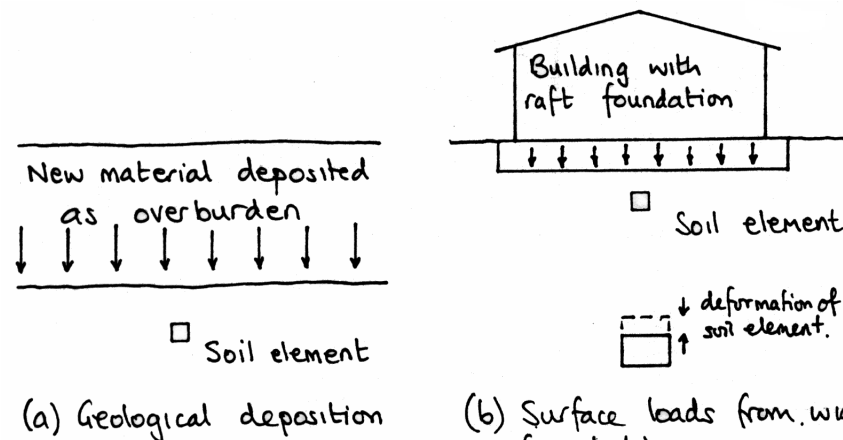 New material deposited
as overburden
Soil element
(a) Geological deposition
Building with
raft foundation
Soil element
deformation of
soil element.
(b) Surface loads from